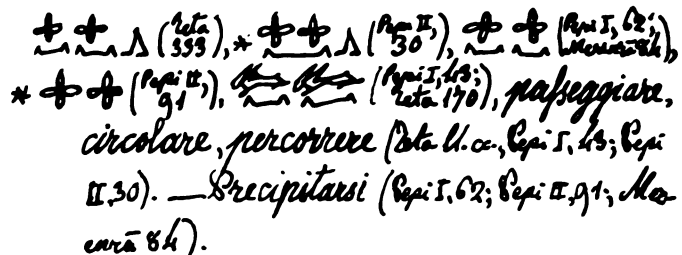 (Teta 333), * (Pepi II, 30), (Pepi I, 62; Merenrā 84),
* (Pepi II, 91), (Pepi I, 43; Teta 170), passeggiare,
circolare, percorrere (Teta ll. cc., Pepi I, 43; Pepi
II, 30). — Precipitarsi (Pepi I, 62; Pepi II, 91; Mer-
enrā 84).